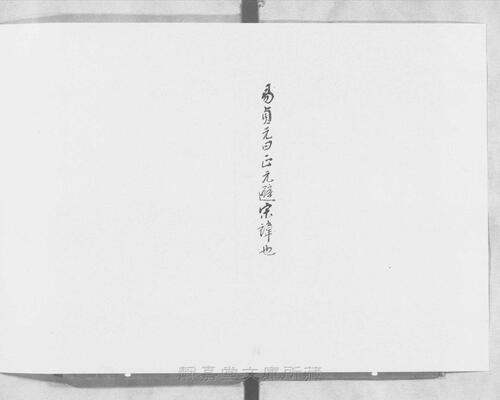 易貞元曰正元避宋諱也
靜嘉堂文庫所藏